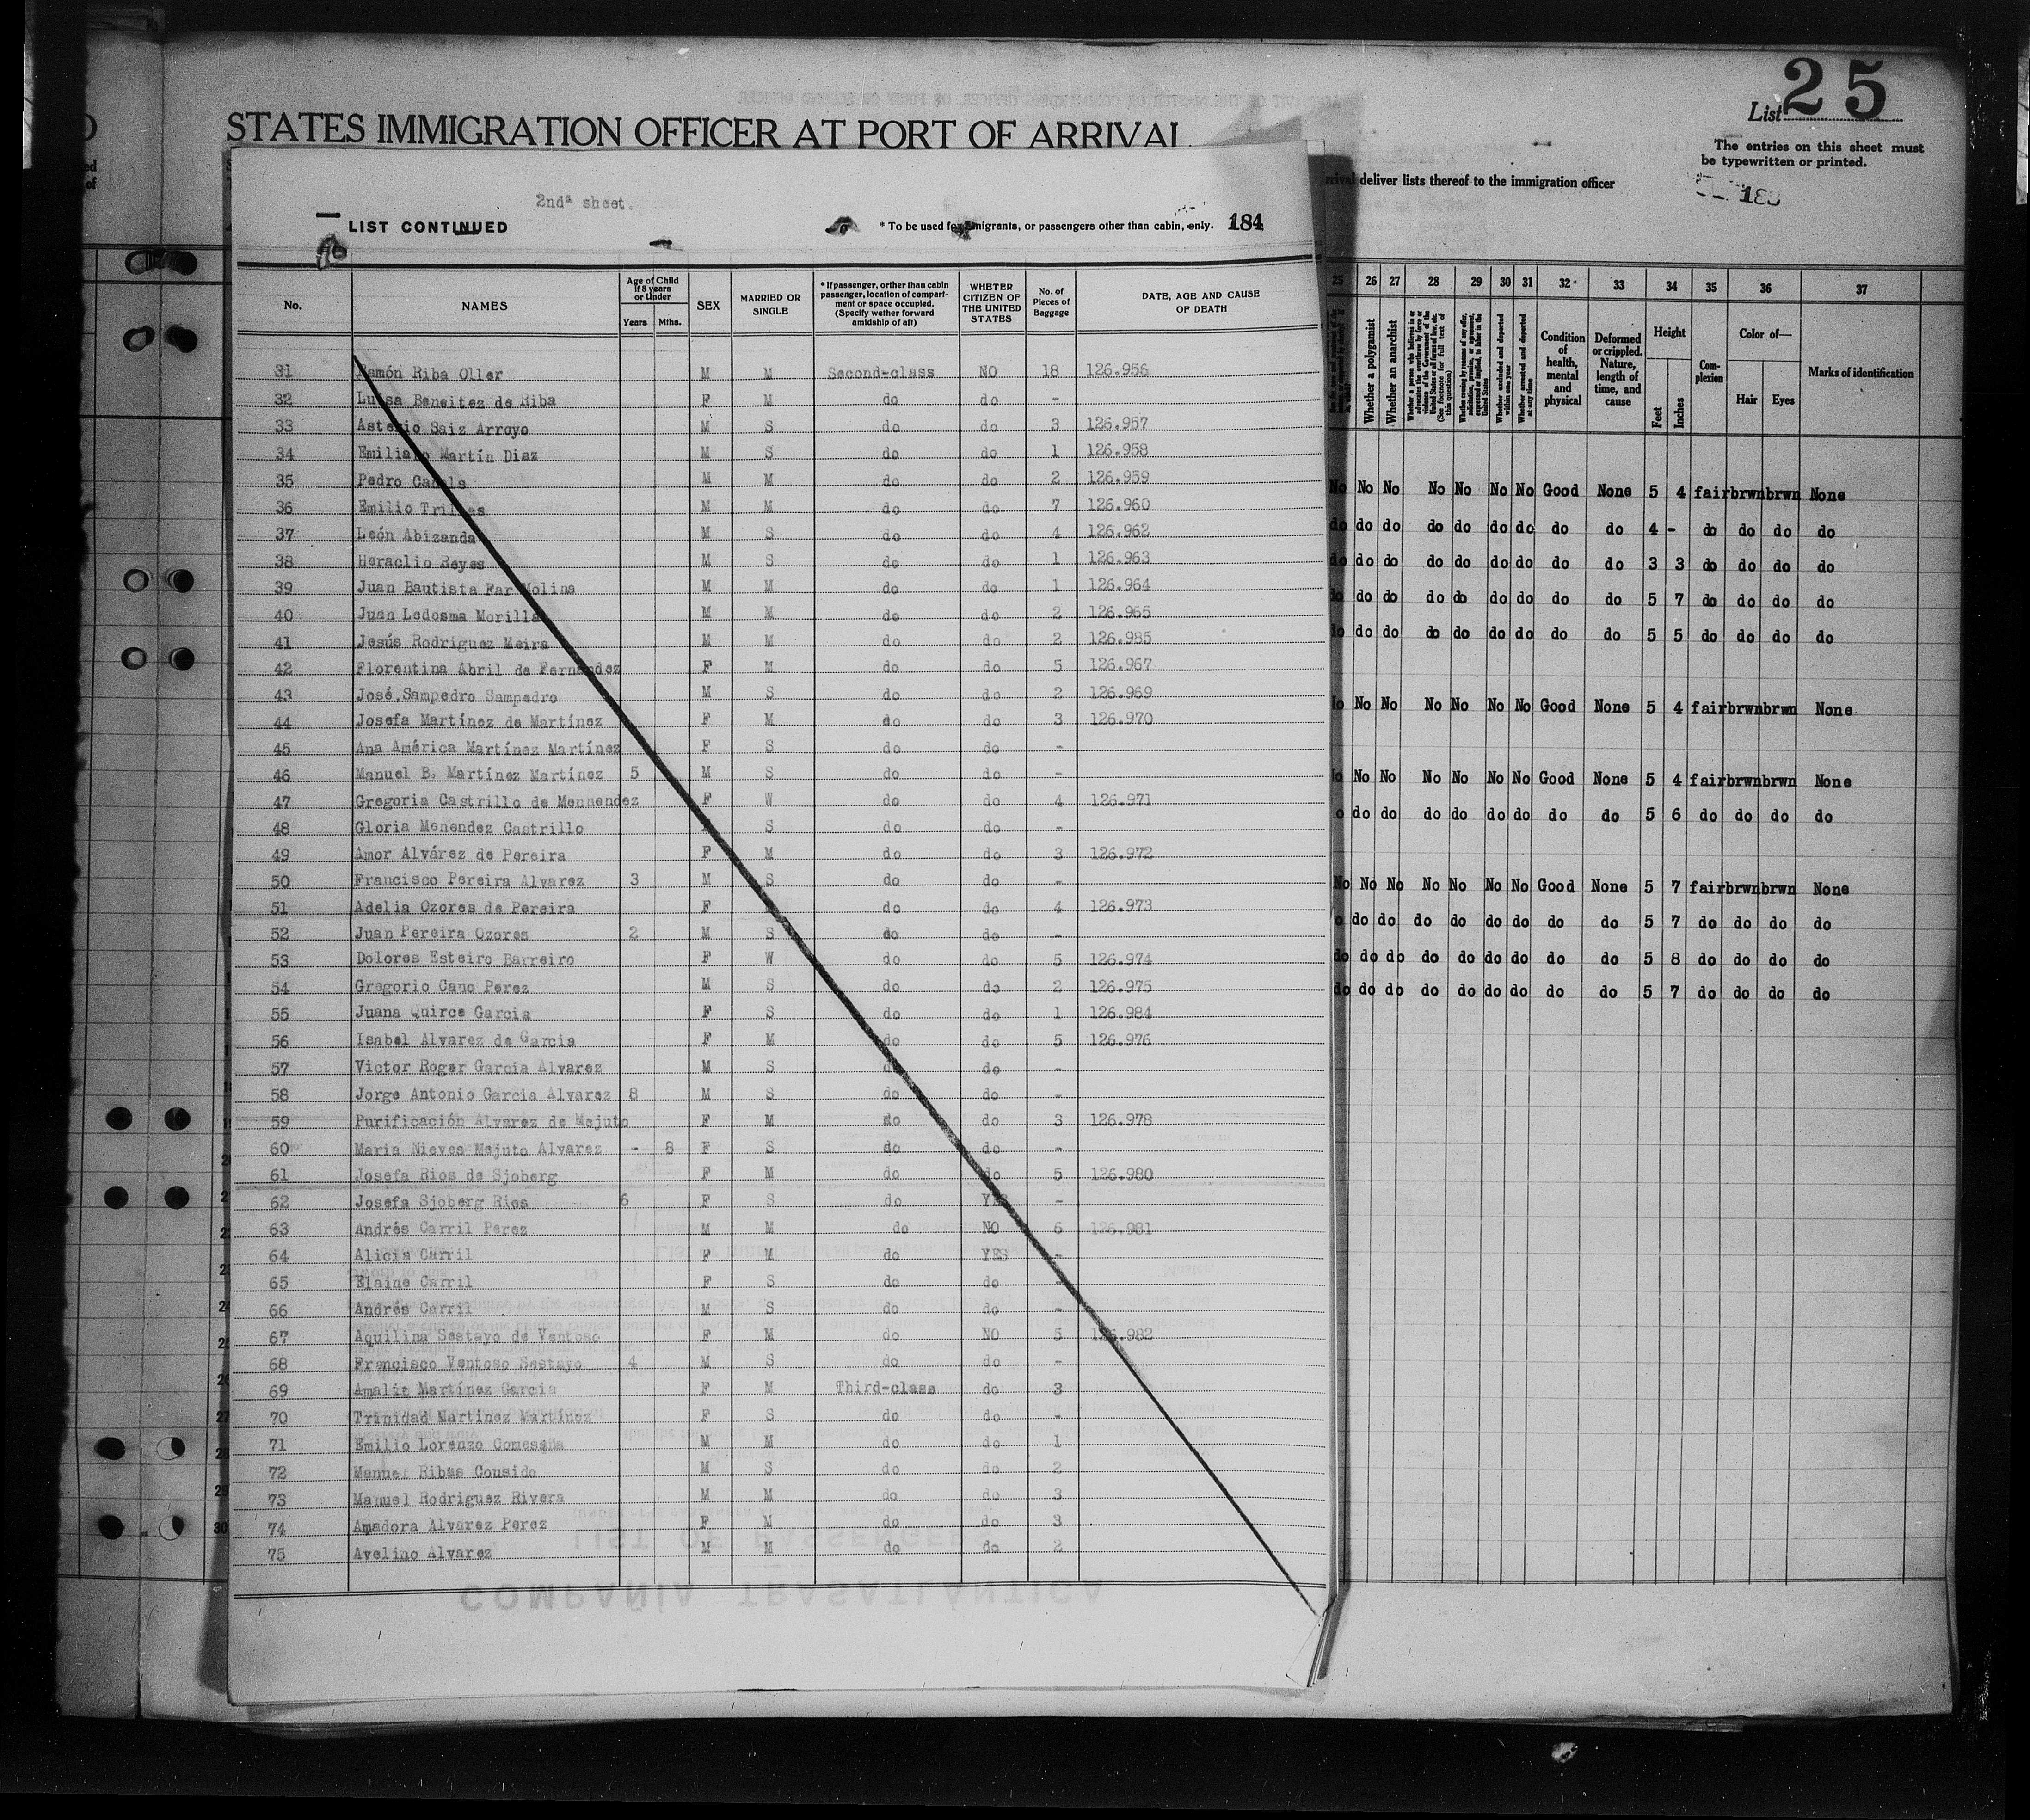 List 25
STATES IMMIGRATION OFFICER AT PORT OF ARRIVAL
The entries on this sheet must
be typewritten or printed.
arrival deliver lists thereof to the immigration officer
2ndª sheet.
LIST CONTINUED
* To be used for Emigrants, or passengers other than cabin, only. 184
No. NAMES Age of Child if 8 years or Under Years Mths. SEX MARRIED OR SINGLE * If passenger, orther than cabin passenger, location of compartiment or space occupied. (Specify wether forward amidship of aft) WHETER CITIZEN OF THE UNITED STATES No. of Pieces of Baggage DATE, AGE AND CAUSE OF DEATH
31 Ramón Riba Oller M M Second-class NO 18 126.956
32 Luisa Beneitez de Riba F M do do -
33 Asterio Saiz Arroyo M S do do 3 126.957
34 Emiliano Martín Diaz M S do do 1 126.958
35 Pedro Canals M M do do 2 126.959
36 Emilio Trilles M M do do 7 126.960
37 León Abizanda M S do do 4 126.962
38 Heraclio Reyes M S do do 1 126.963
39 Juan Bautista Far Molina M M do do 1 126.964
40 Juan Ledosma Morilla M M do do 2 126.965
41 Jesús Rodriguez Meira M M do do 2 126.985
42 Florentina Abril de Fernandez F M do do 5 126.967
43 José Sampedro Sampedro M S do do 2 126.969
44 Josefa Martínez de Martínez F M do do 3 126.970
45 Ana América Martínez Martínez F S do do -
46 Manuel B. Martínez Martínez 5 M S do do -
47 Gregoria Castrillo de Mennendez F W do do 4 126.971
48 Gloria Menendez Castrillo S do do -
49 Amor Alvárez de Pereira F M do do 3 126.972
50 Francisco Pereira Alvarez 3 M S do do -
51 Adelia Ozores de Pereira F do do 4 126.973
52 Juan Pereira Ozores 2 M S do do -
53 Dolores Esteiro Barreiro F W do do 5 126.974
54 Gregorio Cano Perez M S do do 2 126.975
55 Juana Quirce Garcia F S do do 1 126.984
56 Isabel Alvarez de Garcia F M do do 5 126.976
57 Victor Roger Garcia Alvarez M S do do -
58 Jorge Antonio Garcia Alvarez 8 M S do do -
59 Purificación Alvarez de Mejuto F M do do 3 126.978
60 Maria Nieves Mejuto Alvarez - 8 F S do do -
61 Josefa Rios de Sjoberg F M do do 5 126.980
62 Josefa Sjoberg Rios 6 F S do YES -
63 Andrés Carril Perez M M do NO 6 126.981
64 Alicia Carril F M do YES -
65 Elaine Carril F S do do
66 Andrés Carril M S do do -
67 Aquilina Sestayo de Ventoso F M do NO 5 126.982
68 Francisco Ventoso Sestayo 4 M S do do -
69 Amalia Martínez Garcia F M Third-class do 3
70 Trinidad Martínez Martínez F S do do -
71 Emilio Lorenzo Comesaña M M do do 1
72 Manuel Ribas Cousido M S do do 2
73 Manuel Rodriguez Rivera M M do do 3
74 Amadora Alvarez Perez F M do do 3
75 Avelino Alvarez M M do do 2
25 26 27 28 29 30 31 32 33 34 35 36 37
Whether a polygamist
Whether an anarchist
Whether excluded and deported within one year
Whether arrested and deported at any time
Condition of health, mental and physical
Deformed or crippled. Nature, length of time, and cause
Height Feet Inches
Complexion
Color of— Hair Eyes
Marks of identification
No No No No No No No Good None 5 4 fair brwn brwn None
do do do do do do do do do 4 - do do do do
do do do do do do do do do 3 3 do do do do
do do do do do do do do do 5 7 do do do do
do do do do do do do do do 5 5 do do do do
No No No No No No No Good None 5 4 fair brwn brwn None
No No No No No No No Good None 5 4 fair brwn brwn None
do do do do do do do do do 5 6 do do do do
No No No No No No No Good None 5 7 fair brwn brwn None
do do do do do do do do do 5 7 do do do do
do do do do do do do do do 5 8 do do do do
do do do do do do do do do 5 7 do do do do